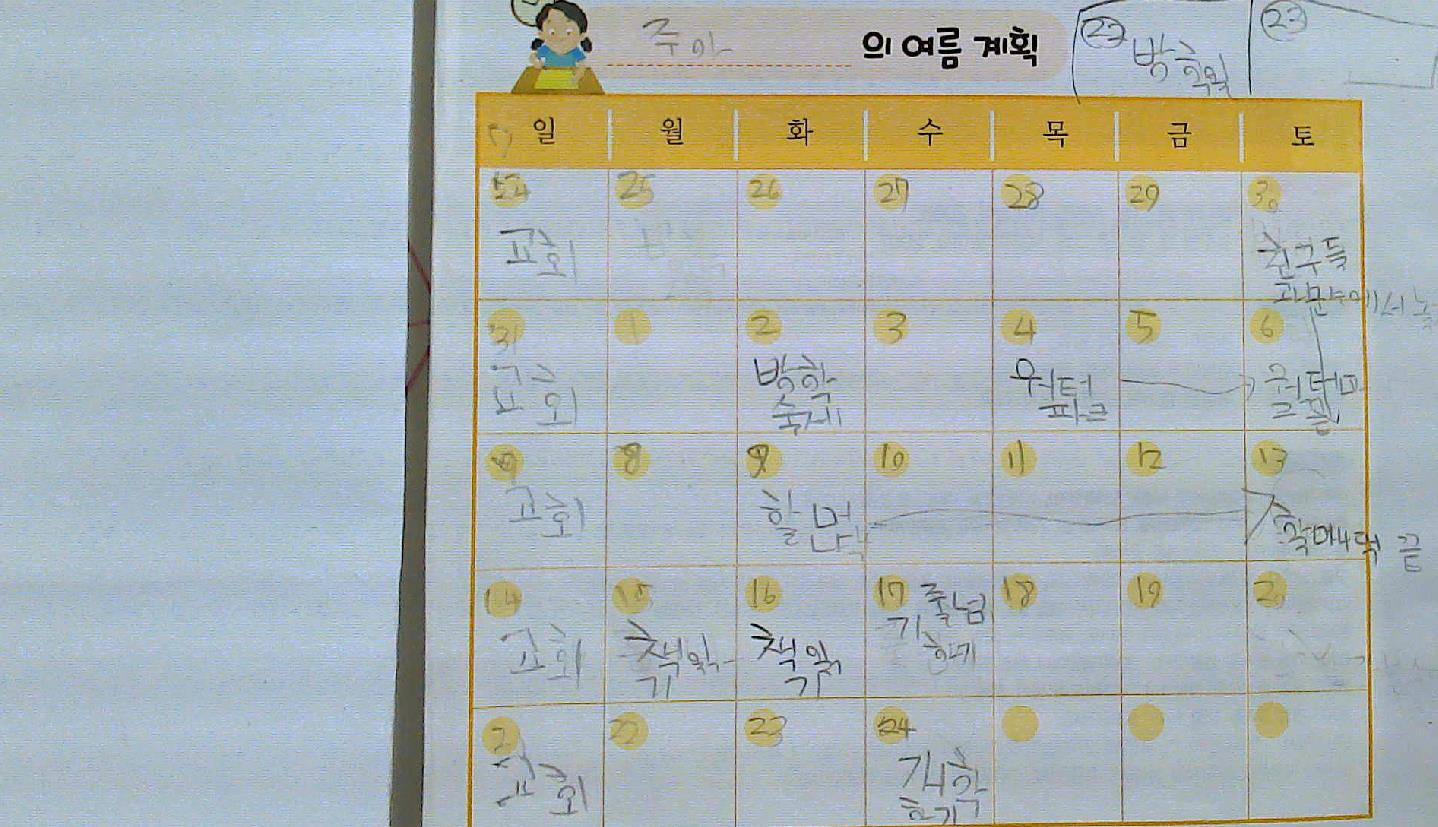 주아 의 여름 계획
22 방학
23
일 월 화 수 목 금 토
24 25 26 27 28 29 30
교회
친구들
분수에서
31 1 2 3 4 5 6
교회
방학
숙제
워터
파크
워터파
크 끝
8 9 10 11 12 13
교회
할먼
할머니댁 끝
14 15 16 17 줄넘 18 19 20
기
하기
교회
책읽
기
책읽
기
21 22 23 24
교회
개학
하기